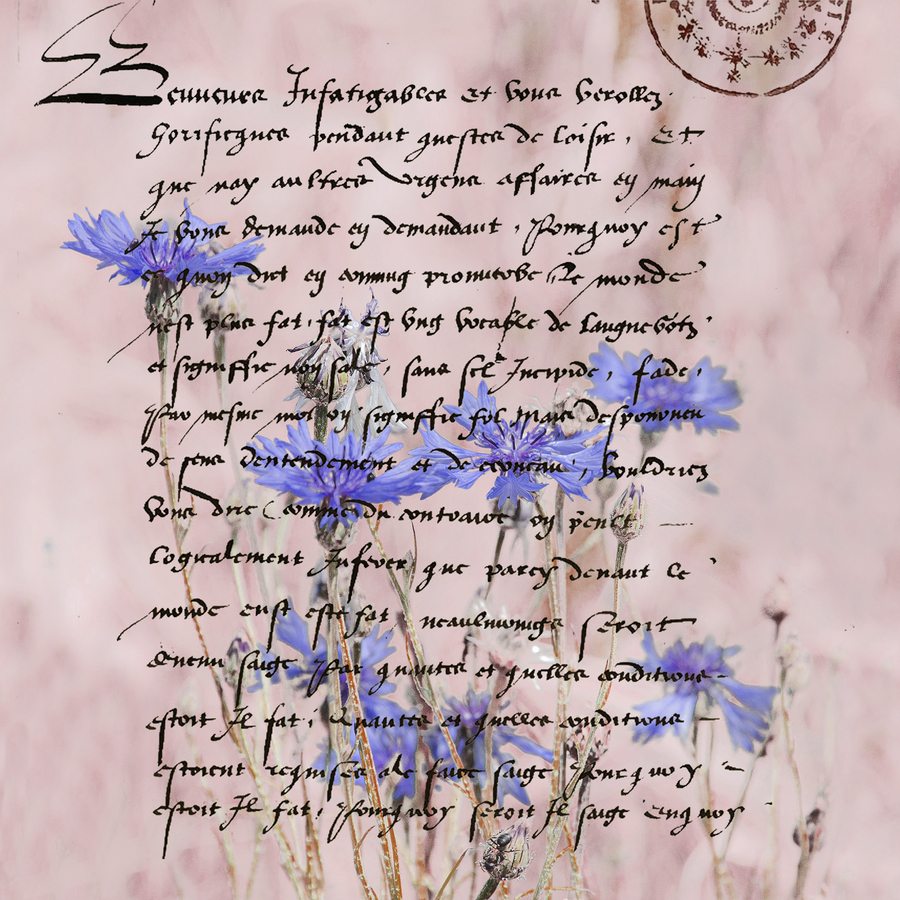 Beuueurs Infatigables et vous verollez
horificques pendant questes de loisir, Et
que nay aultres Vrgens affaires en main
Je vous demande en demandant, Pourquoy est
ce quoy dict en commung Le monde
nest plus fat, fat est vng vocable de languegotz
et signiffie non sale, sans sel Incipide, fade,
Par mesme mot on signiffie fol Mais despourueu
de sens dentendement et de cerueau, vouldriez
vous dire (comme du contraire) on peult
logicalement Inferer que parcy deuant le
monde eust este fat neaulmoings seroit
deuenu saige Par quantes et quelles conditions
estoit Il fat; Quantes et quelles conditions
estoient requises ale faire saige Pourquoy
estoit Il fat, Pourquoy seroit Il saige Enquoy